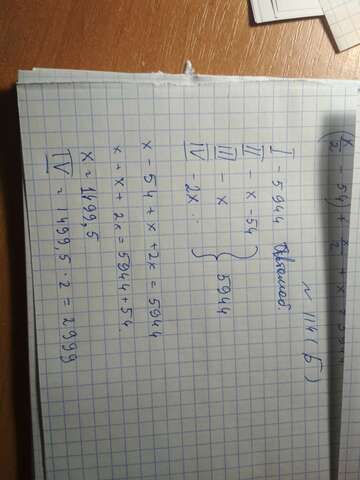 (x/2 - 54) + x/2 + x = 5944
N 1114 (б)
I - 5944
II - x - 54
III - x
IV - 2x
} 5944
x - 54 + x + 2x = 5944
x + x + 2x = 5944 + 54
x = 1499,5
IV = 1499,5 · 2 = 2999